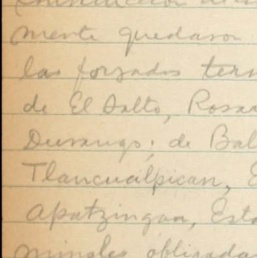 mente quedaron
las forzadas term
de El Salto, Rosa
Durango; de Bal
Tlancualpican, E
Apatzingan, Esta
minales obligadas